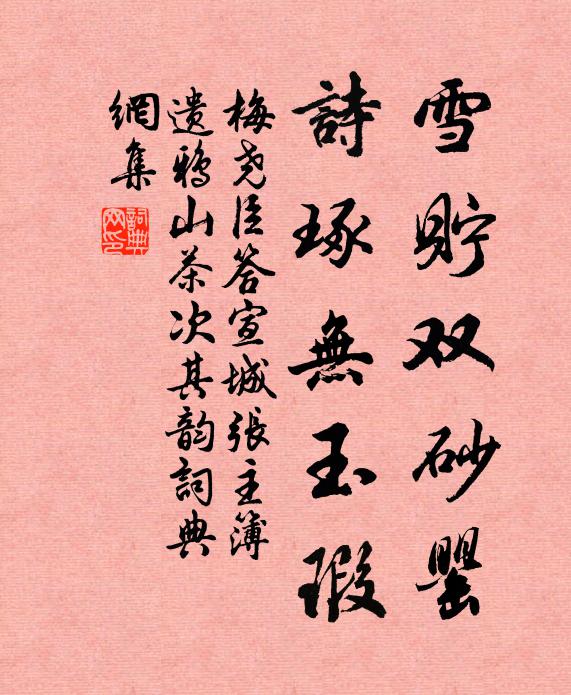 雪贮双砂罂
詩琢無玉瑕
梅尧臣答宣城張主簿
遗鴉山茶次其韵詞典
網集
詞典网印